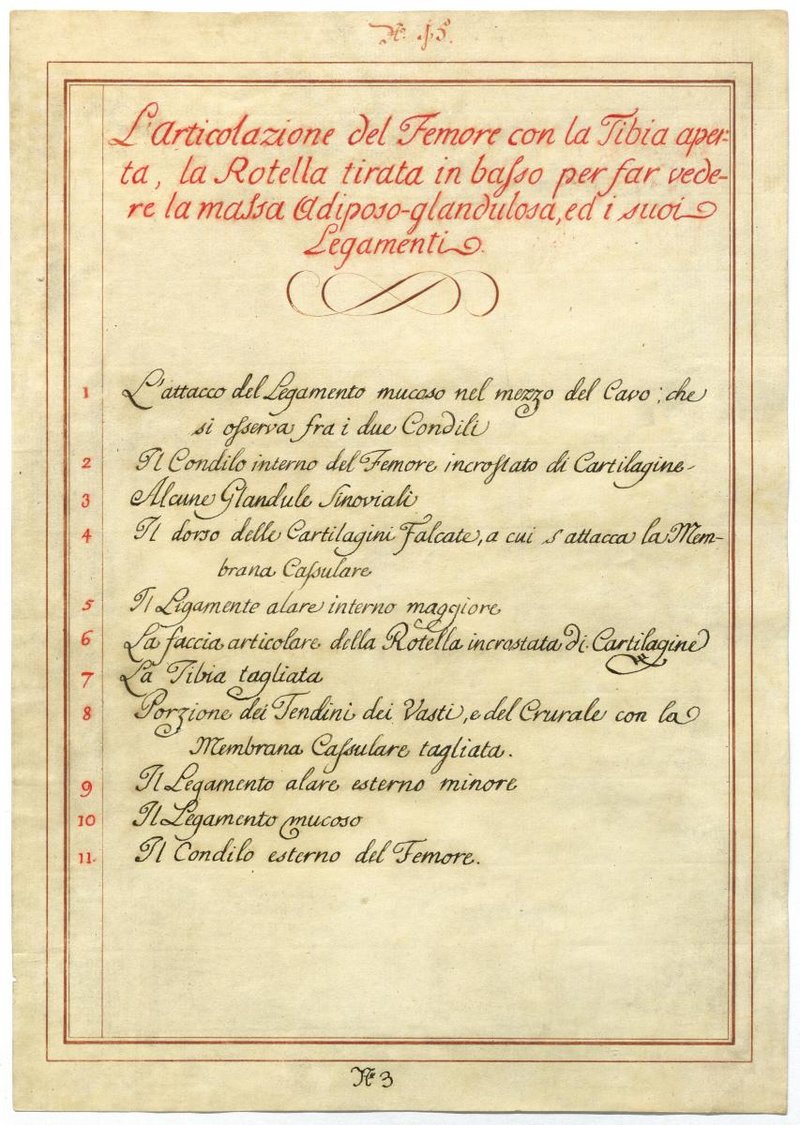 N.º 45.
L'Articolazione del Femore con la Tibia aper-
ta, la Rotella tirata in baſso per far vede-
re la maſsa Adiposo-glandulosa, ed i suoi
Legamenti.
1 L'attacco del Legamento mucoso nel mezzo del Cavo; che
si oſserva fra i due Condili
2 Il Condilo interno del Femore incrostato di Cartilagine
3 Alcune Glandule Sinoviali
4 Il dorso delle Cartilagini Falcate, a cui s'attacca la Mem-
brana Caſsulare
5 Il Ligamente alare interno maggiore
6 La faccia articolare della Rotella incrostata di Cartilagine
7 La Tibia tagliata
8 Porzione dei Tendini dei Vasti, e del Crurale con la
Membrana Caſsulare tagliata.
9 Il Legamento alare esterno minore
10 Il Legamento mucoso
11. Il Condilo esterno del Femore.
Nº 3